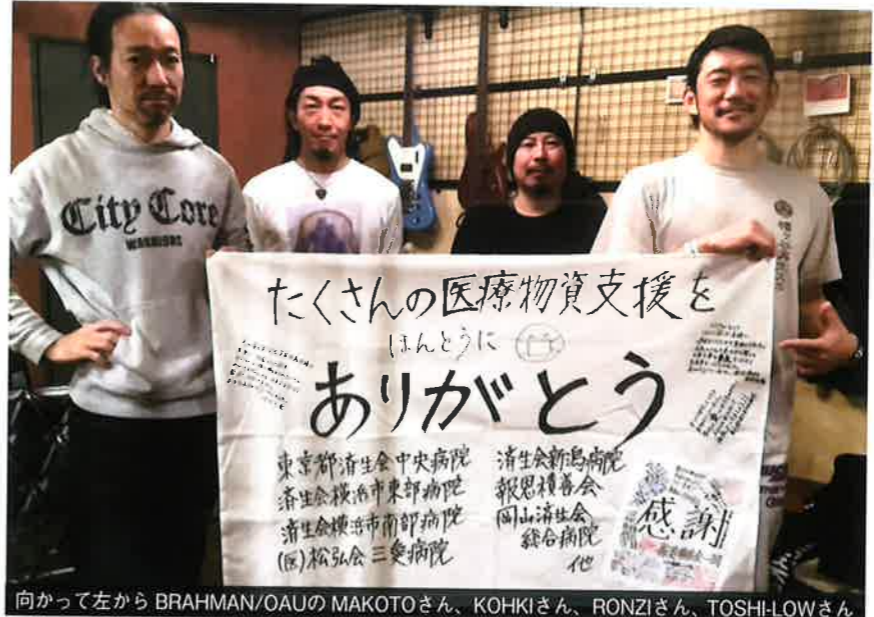 City Core
WARRIORS
たくさんの医療物資支援を
ほんとうに
ありがとう
東京都済生会中央病院
済生会横浜市東部病院
済生会横浜市南部病院
(医)松弘会 三愛病院
済生会新潟病院
報恩積善会
岡山済生会
総合病院
他
感謝
向かって左から BRAHMAN/OAUの MAKOTOさん、KOHKIさん、RONZIさん、TOSHI-LOWさん